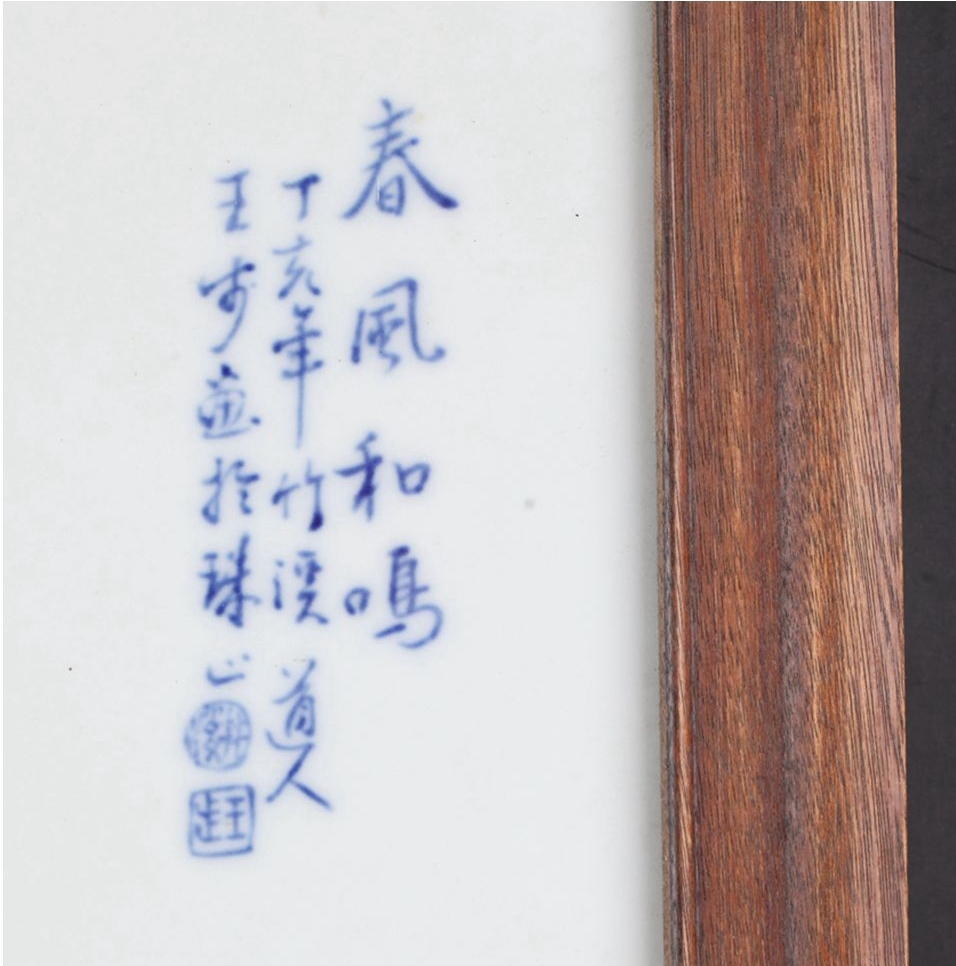 春風和鳴
丁亥年竹溪道人
王步並於珠山